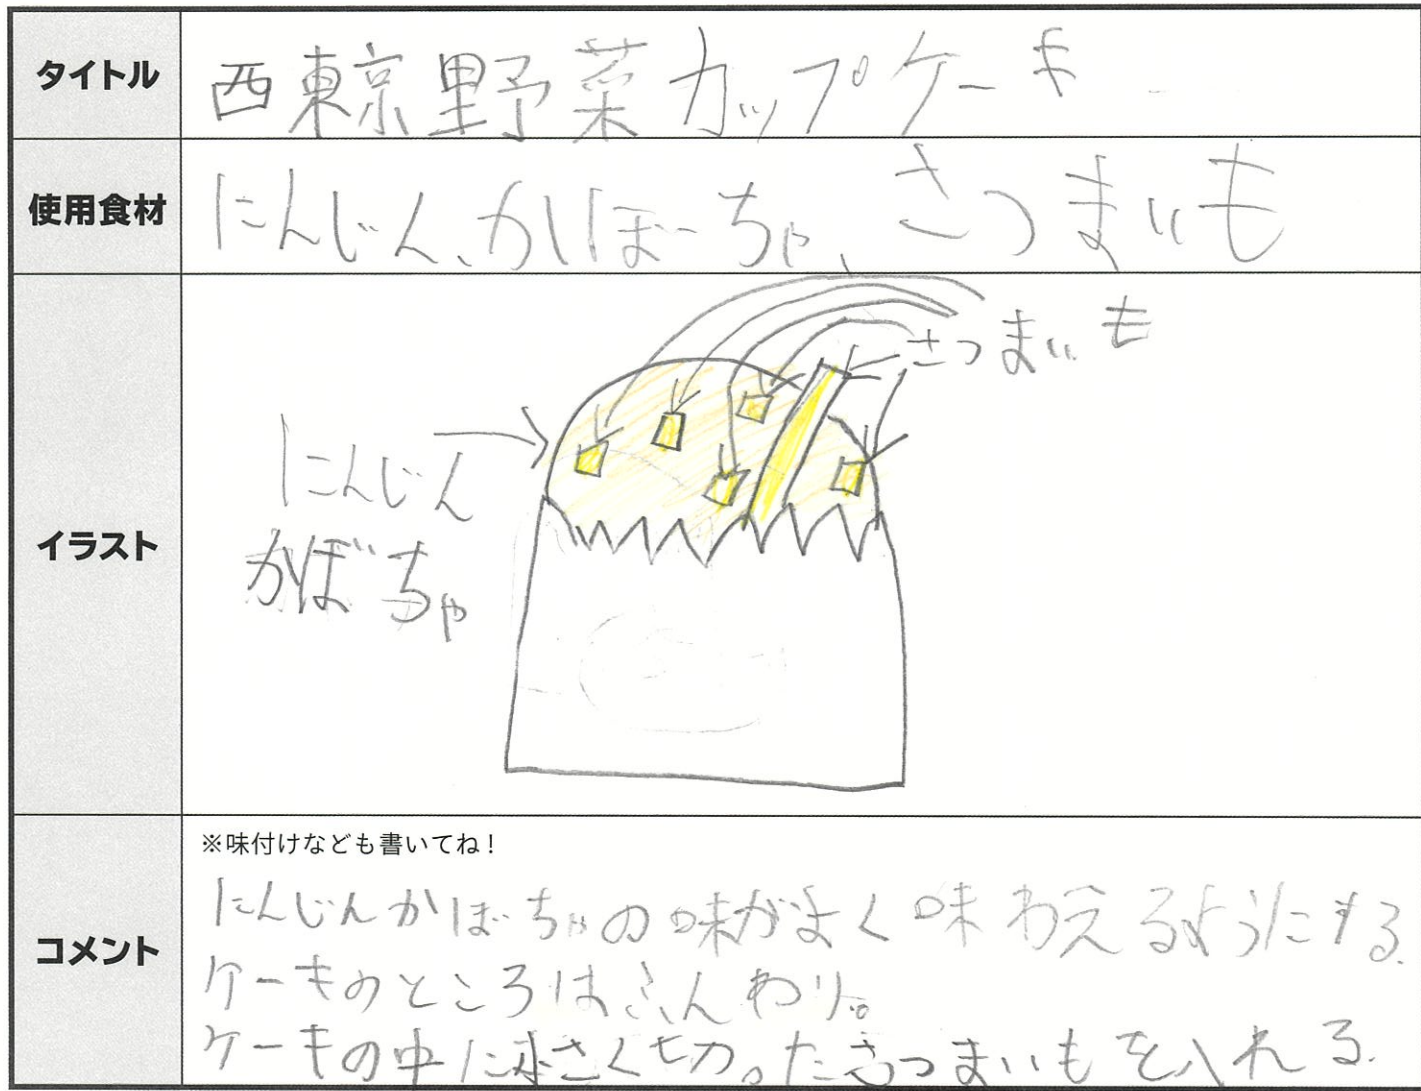 タイトル
西東京野菜カップケーキ
使用食材
にんじん、かぼーちゃ、さつまいも
イラスト
さつまいも
にんじん
かぼちゃ
コメント
※味付けなども書いてね!
にんじんかぼちゃの味がよく味わえるようにする。
ケーキのところはふんわり。
ケーキの中に小さく切ったさつまいもを入れる。